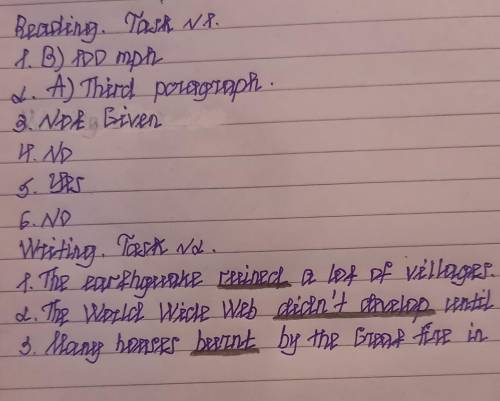 Reading. Task №1.
1. B) 100 mph
2. A) Third paragraph.
3. Not Given
4. No
5. Yes
6. No
Writing. Task №2.
1. The earthquake ruined a lot of villages.
2. The World Wide Web didn't develop until
3. Many houses burnt by the Great fire in